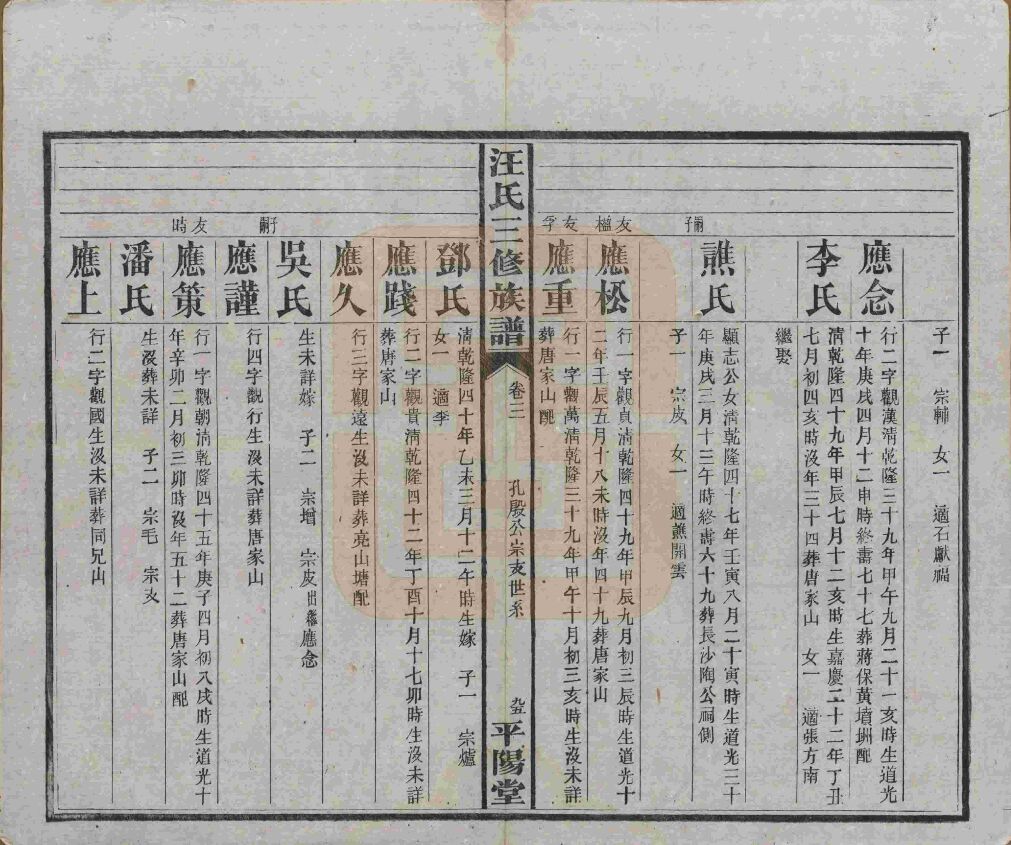 子一 宗輔 女一 適石獻福
應念
行二字觀漢清乾隆三十九年甲午九月二十一亥時生道光
十年庚戌四月十二申時終壽七十七葬蔣保黃墳堋配
李氏
清乾隆四十九年甲辰七月十二亥時生嘉慶二十二年丁丑
七月初四亥時沒年三十四葬唐家山 女一 適張方南
繼娶
嗣子
譙氏
顯志公女清乾隆四十七年壬寅八月二十寅時生道光三十
年庚戌三月十三午時終壽六十九葬長沙陶公祠側
子一 宗皮 女一 適譙開雲
友楹
應松
行一字觀真清乾隆四十九年甲辰九月初三辰時生道光十
二年壬辰五月十八未時沒年四十九葬唐家山
友孚
應重
行一字觀萬清乾隆三十九年甲午十月初三亥時生沒未詳
葬唐家山配
汪氏三修族譜
卷三
孔殷公崇支世系
九五
平陽堂
鄧氏
清乾隆四十年乙未三月十二午時生嫁 子一 宗爐
女一 適李
應踐
行二字觀貴清乾隆四十二年丁酉十月十七卯時生沒未詳
葬唐家山
應久
行三字觀遠生沒未詳葬亮山塘配
子嗣
吳氏
生未詳嫁 子二 宗增 宗皮出繼應念
應謹
行四字觀行生沒未詳葬唐家山
友時
應策
行一字觀朝清乾隆四十五年庚子四月初八戌時生道光十
年辛卯二月初三卯時沒年五十二葬唐家山配
潘氏
生沒葬未詳 子二 宗毛 宗支
應上
行二字觀國生沒未詳葬同兄山